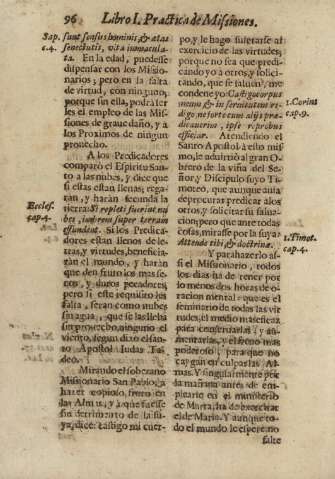 96 Libro I. Practica de Missiones.
Sap. c.4.
sunt sensus hominis, & ætas
senectutis, vita inmacula-
ta.
En la edad, puedesse
dispensar con los Missio-
narios; pero en la falta
de virtud, con ninguno,
porque sin ella, podrà ser
les el empleo de las Mis-
siones de grave daño, y à
los Proximos de ningun
provecho.
A los Predicadores
comparò el Espiritu Santo
à las nubes, y dice que
si estas estàn llenas, rega-
ràn, y haràn fecunda la
Eccles. cap.4.
tierra: Si repletæ fuerint nu
bes, imbrem super terram
effundent. Si los Predica-
dores estàn llenos de le-
tras, y virtudes, beneficia-
ràn el mundo, y haràn
que den fruto los mas se-
cos, y duros pecadores,
pero si este requisito les
falta, seràn como nubes
sin agua, que se las lleba
sin provecho, ninguno el
viento, segun dixo el San-
to Apostol Iudas Ta-
deo.
Mirando el soberano
Missionario San Pablo, à
hazer copioso, fruto en
las Almas, y que fuesse
sin detrimento de la su-
ya, dice: castigo mi cuer-
po, y le hago sujetarse al
exercicio de las virtudes,
porque no sea que predi-
cando yo à otros, y solici-
cando, que se salven, me
condene yo: Castigo corpus
meum & in servitutem re
1.Corint cap.9.
digo ne forte cum alijs præ-
dicaverim, ipse reprobus
efficiar. Atendiendo el
Santo Apostol à esto mis-
mo, le advirtiò al gran O-
brero de la viña del Se-
ñor, y Discipulo suyo Ti-
moteo, que aunque avia
de procurar predicar à los
otros, y solicitar su salua-
cion, pero que ante todas
cosas, mirasse por la suya:
1.Timot. cap.4.
Attende tibi, & doctrinæ.
Y para hazerlo as-
si el Missionario, todos
los dias ha de tener por
lo menos dos horas de o-
racion mental: que es el
seminario de todas las vir
tudes, el medio mas eficaz
para conservarlas, y au-
mentarlas, y el freno mas
poderoso, para que no
caygan en culpas las Al-
mas. Y singularmente por
la mañana antes de em-
plearse en el ministerio
de Marta, ha de exercitar
el de Maria. Y aunque to-
do el mundo le espere, no
falte